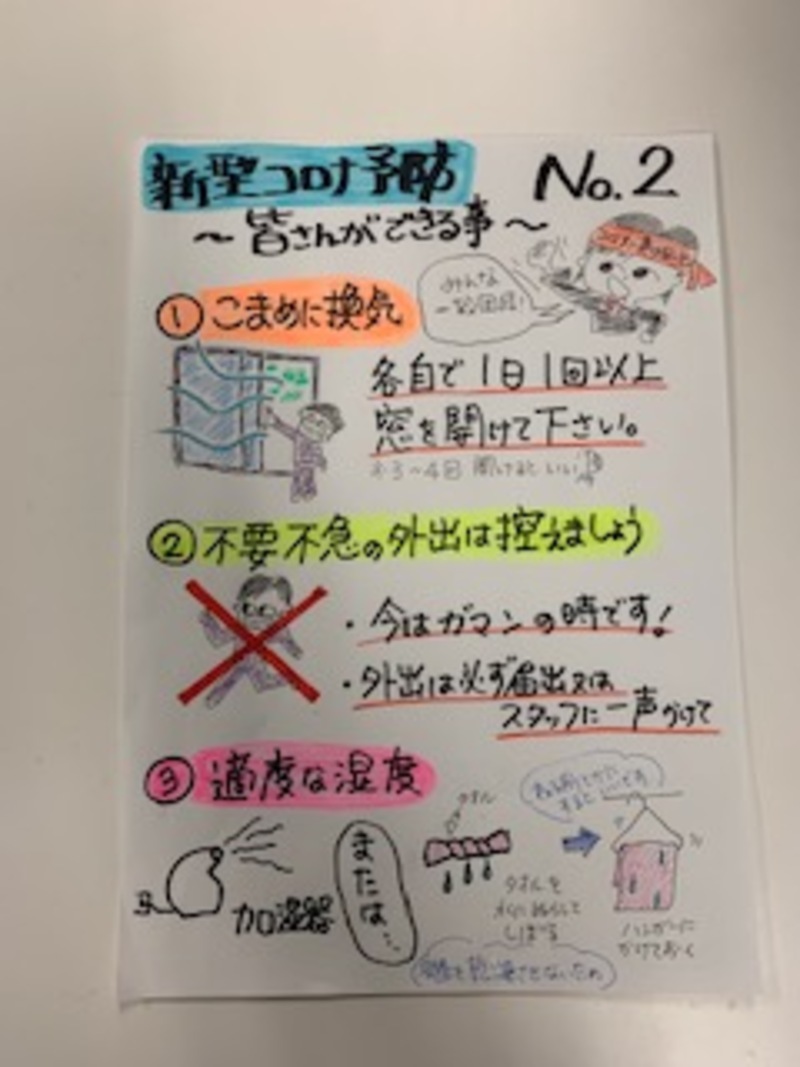 新型コロナ予防 No.2
～皆さんができる事～
みんな
一致団結!
① こまめに換気
各自で1日1回以上
窓を開けて下さい。
3～4回 開けるといい
② 不要不急の外出は控えましょう
・今はガマンの時です!
・外出は必ず届出又は
スタッフに一声かけて
③ 適度な湿度
加湿器
または...
タオル
タオルを
しぼる
ハンガーに
かけておく
乾燥させないため